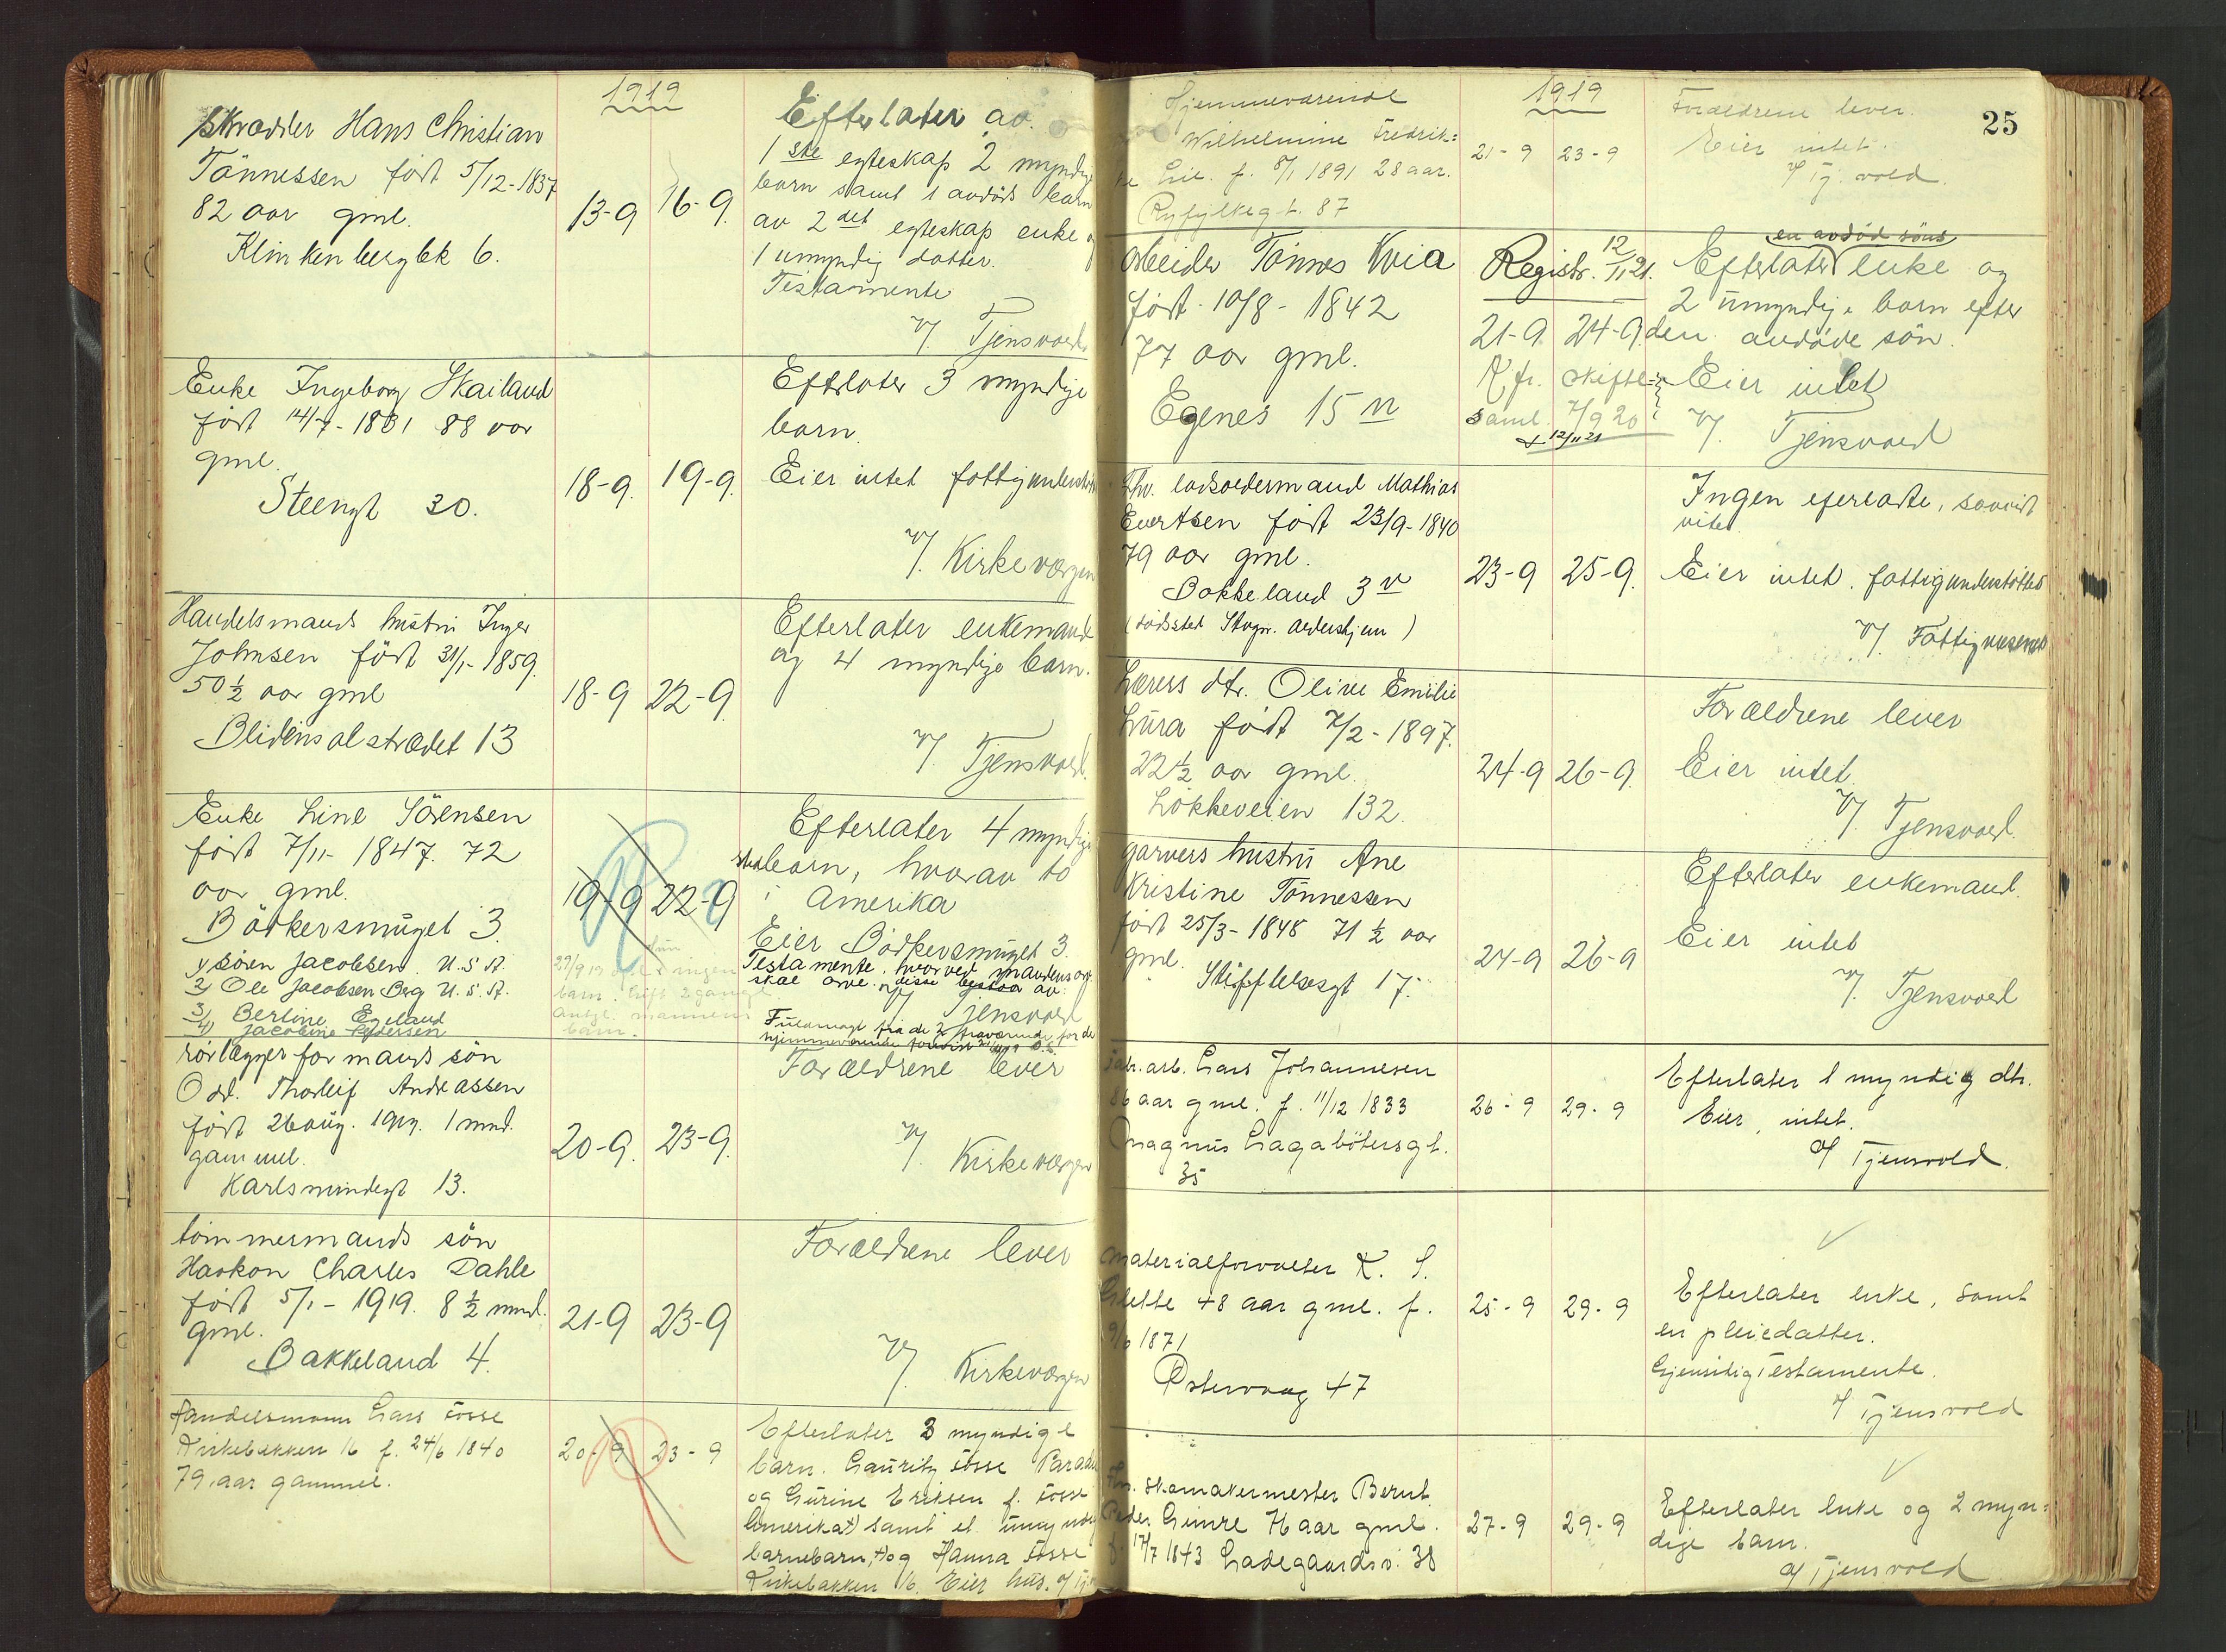 1919
Skrædder Hans Christian
Tönnessen født 5/12-1837
82 aar gml.
Klinkenbergbk 6.
13-9 16-9.
Efterlater av
1ste egteskap 2 myndige
barn samt 1 avdøds barn
av 2det egteskap enke og
1 umyndig datter.
Testamente
v/. Tjensvold
Enke Ingeborg Skailand
født 14/7-1831 88 aar
gml.
Steengt 30.
18-9. 19-9.
Efterlater 3 myndige
barn.
Eier intet fattigunderstöt
v/. Kirkeværgen
Handelsmands hustru Inger
Johnsen født 31/1-1859.
50½ aar gml
Blidensolstrædet 13
18-9 22-9.
Efterlater enkemand
og 4 myndige barn.
v/. Tjensvold.
Enke Line Sörensen
født 7/11-1847. 72
aar gml.
Bödkersmuget 3.
1/ Sören Jacobsen. U.S.A.
2/ Ole Jacobsen Berg U.S.A.
3/ Bertine Egeland
4/ Jacobine Pedersen
19-9 22-9
Efterlater 4 myndige
barn, hvorav to
i Amerika
Eier Bödkersmuget 3.
Testamente, hvorved mandens
skal arve. disse bestaar av:
v/ Tjensvold
Fuldmagt fra de 2 fraværende, for de
hjemmeværende
rörlæggerformands sön
Odd. Thorleif Andreassen
født 26 aug. 1919. 1 mnd.
gammel.
Karlsmindegt 13.
20-9. 23-9.
Forældrene lever
v/. Kirkeværgen
tömmermands sön
Haakon Charles Dahle
født 5/1-1919. 8½ mnd.
gml.
Bakkeland 4.
21-9 23-9
Forældrene lever
v/. Kirkeværgen
Handelsmann Lars Fosse
Kirkebakken 16 f. 24/6 1840
79 aar gammel.
20-9 23-9
Efterlater 3 myndige
barn. Lauritz Fosse Parade
og Gurine Eriksen f. Fosse
(Amerika+) samt et umyndig
barnebarn, +og Hanna Fosse
Kirkebakken 16. Eier hus. v/ Tj
25
1919
Hjemmeværende
Wilhelmine Fredrik=
ke Lie. f. 8/1 1891 28 aar.
Ryfylkegt. 87
21-9 23-9
Forældrene lever.
Eier intet.
v/ Tj.vold.
Arbeider Tönnes Kvia
født 10/8-1842
77 aar gml.
Egenes 15 n
Registr. 12/11 21.
21-9. 24-9.
K fr. skifte=
saml. 7/9 20
+ 12/11 21
en avdöd söns
Efterlater enke og
2 umyndige barn efter
den avdöde sön.
Eier intet
v/. Tjensvold
Fhv. lodsoldermand Mathias
Evertsen født 23/9-1840
79 aar gml.
Bakkeland 3 v
(dödssted Stvgr. Aldershjem)
23-9 25-9.
Ingen eferlatte, savidt
vites
Eier intet. fattigunderstöttet
v/. Fattigvæsenet
Lærers dtr. Oline Emilie
Lura født 7/2-1897.
22½ aar gml.
Lökkeveien 132.
24-9 26-9.
Forældrene lever
Eier intet.
v/. Tjensvold.
garvers hustru Ane
Kristine Tönnessen
født 25/3-1848 71½ aar
gml.
Stiftelsesgt 17.
24-9 26-9
Efterlater enkemand.
Eier intet
v/. Tjensvold
Fabr. arb. Lars Johannesen
86 aar gml. f. 11/12 1833
Magnus Lagabötersgt.
35
26-9 29-9
Efterlater 1 myndig dtr.
Eier intet.
v/ Tjensvold.
Materialforvalter K. S.
48 aar gml. f.
9/6 1871
Østervaag 47
25-9 29-9
Efterlater enke, samt
en pleiedatter.
Gjensidig Testamente.
v/ Tjensvold
Fhv. Skomakermester Bernt
Peder Gimre 76 aar gml.
f. 17/7 1843 Ladegaardsv. 38
27-9 29-9
Efterlater enke og 2 myn=
dige barn.
v/ Tjensvold